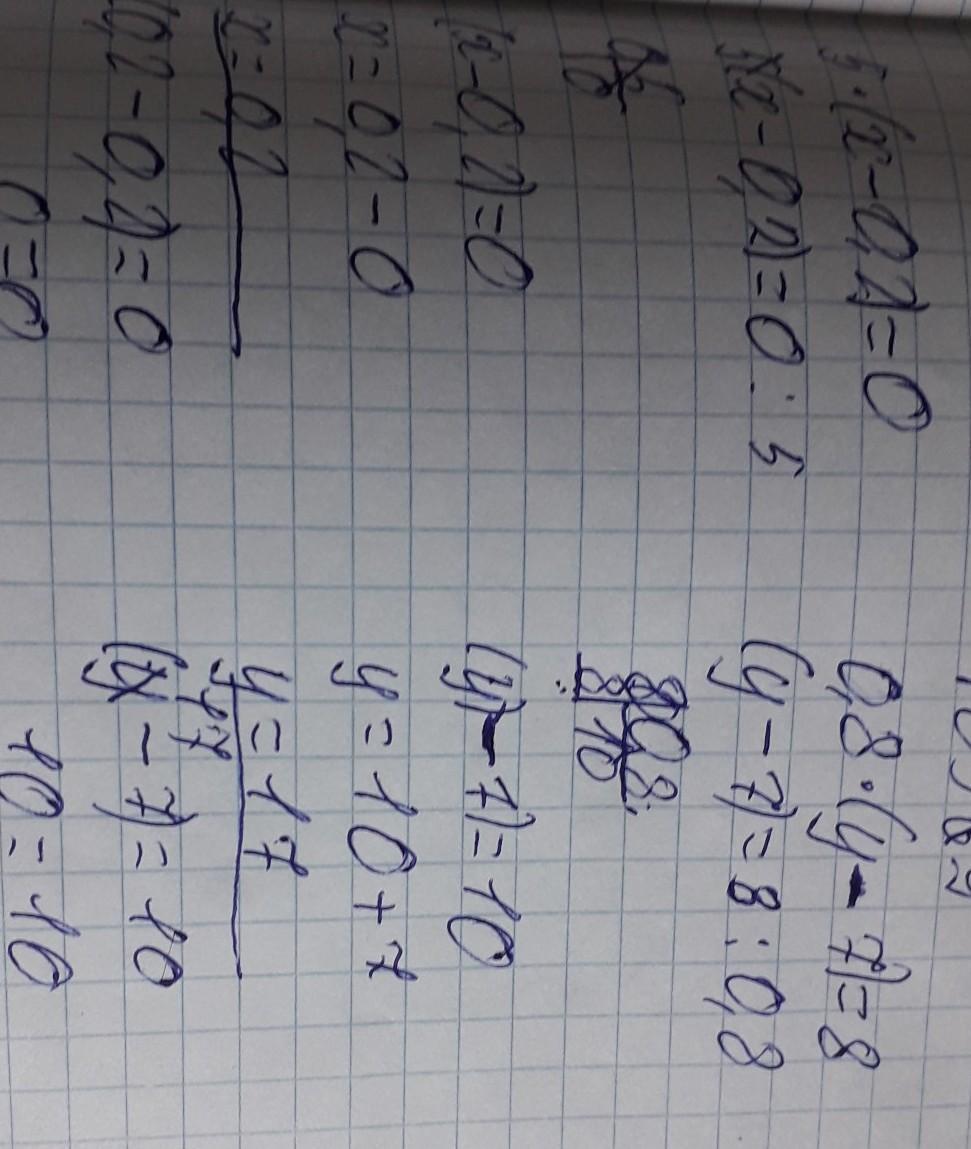 5·(x-0,2)=0
(x-0,2)=0:5
(x-0,2)=0
x=0,2-0
x=0,2
0,2-0,2)=0
0=0
0,8·(y-7)=8
(y-7)=8:0,8
(y-7)=10
y=10+7
y=17
17
(y-7)=10
10=10